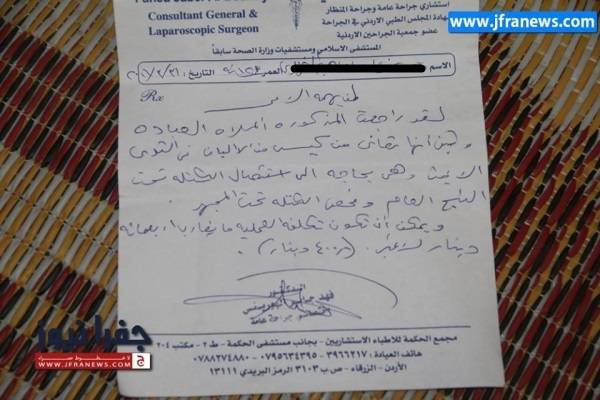 www.jfranews.com
Consultant General &
Laparoscopic Surgeon
استشاري جراحة عامة وجراحة المنظار
شهادة المجلس الطبي الأردني في الجراحة
عضو جمعية الجراحين الاردنية
المستشفى الاسلامي ومستشفيات وزارة الصحة سابقاً
الاسم العمر التاريخ:
Rx
لمن يهمه الأمر
لقد راجعت المذكورة أعلاه العيادة
وتبين أنها تعاني من كيس من الألياف في الثدي
الأيمن وهي بحاجة الى استئصال الكتلة تحت
البنج العام وفحص الكتلة تحت المجهر
ويمكن أن تكون تكلفة العملية ما يقارب اربعمائة
دينار لا غير. (٤٠٠ دينار).
الدكتور
جراحة عامة
مجمع الحكمة للأطباء الاستشاريين - بجانب مستشفى الحكمة - ط ٢ - مكتب ٢٠٤
هاتف العيادة: ٣٩٦٦٢١٧ - ٠٧٩٥٦٣٤٣٩٥ - ٠٧٨٨٢٧٤٨٨٠
الأردن - الزرقاء - ص ب ٣١٠٣ الرمز البريدي ١٣١١١
جفرا نيوز
WWW.JFRANEWS.COM